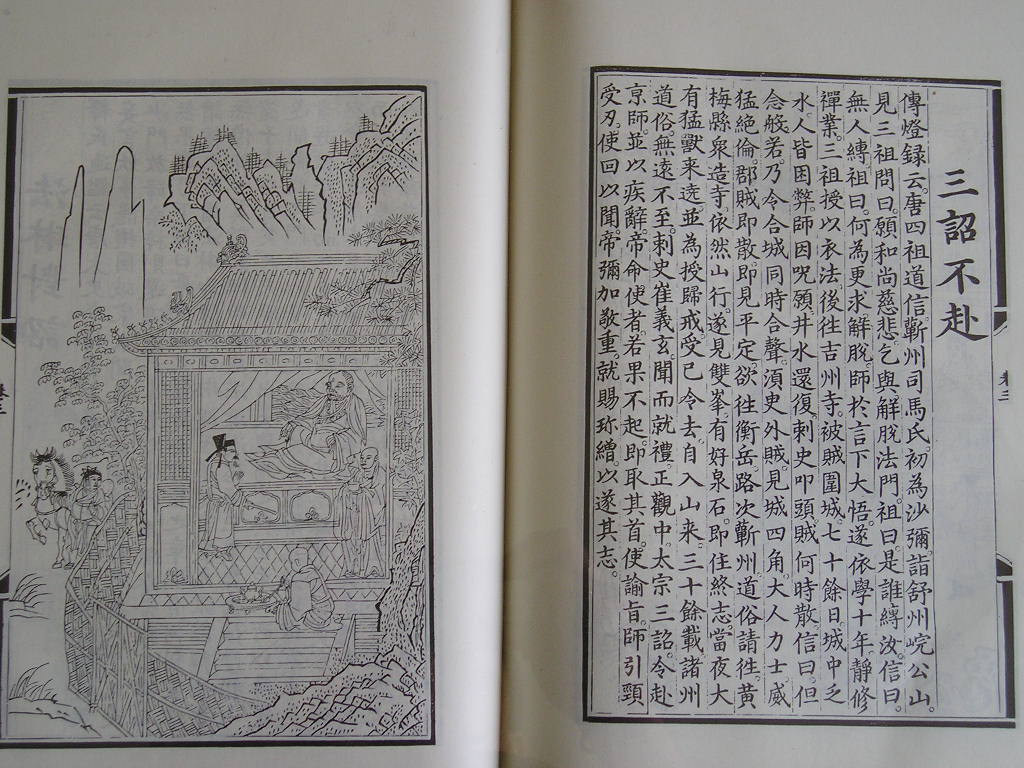 三詔不赴
傳燈録云。唐四祖道信。蘄州司馬氏。初為沙彌。詣舒州皖公山。
見三祖問曰。願和尚慈悲。乞與解脫法門。祖曰。是誰縛汝。信曰。
無人縛。祖曰。何為更求解脫。師於言下大悟。遂依學十年。靜修
禪業。三祖授以衣法。後往吉州寺。被賊圍城七十餘日。城中乏
水。人皆困弊。師因呪願。井水還復。刺史叩頭。賊何時散。信曰。但
念般若。乃令合城同時合聲。須臾外賊見城四角。大人力士。威
猛絕倫。郡賊即散。即見平定。欲往衡岳。路次蘄州。道俗請往黃
梅縣。衆造寺依然山行。遂見雙峯。有好泉石。即住終志。當夜大
有猛獸來遶。並為授歸戒。受已令去。自入山來。三十餘載。諸州
道俗。無遠不至。刺史崔義玄聞而就禮。正觀中太宗三詔令赴
京師。並以疾辭。帝命使者。若果不起。即取其首。使諭旨。師引頸
受刃。使回以聞。帝彌加敬重。就賜珎繒。以遂其志。
卷三
卷三